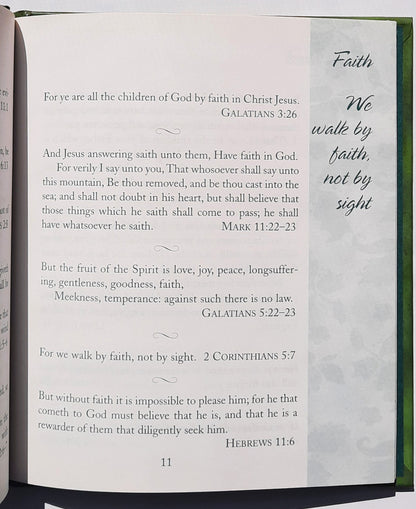 For ye are all the children of God by faith in Christ Jesus.
GALATIANS 3:26
And Jesus answering saith unto them, Have faith in God.
For verily I say unto you, That whosoever shall say unto
this mountain, Be thou removed, and be thou cast into the
sea; and shall not doubt in his heart, but shall believe that
those things which he saith shall come to pass; he shall
have whatsoever he saith. MARK 11:22–23
But the fruit of the Spirit is love, joy, peace, longsuffer-
ing, gentleness, goodness, faith,
Meekness, temperance: against such there is no law.
GALATIANS 5:22–23
For we walk by faith, not by sight. 2 CORINTHIANS 5:7
But without faith it is impossible to please him; for he that
cometh to God must believe that he is, and that he is a
rewarder of them that diligently seek him.
HEBREWS 11:6
11
Faith
We
walk by
faith,
not by
sight